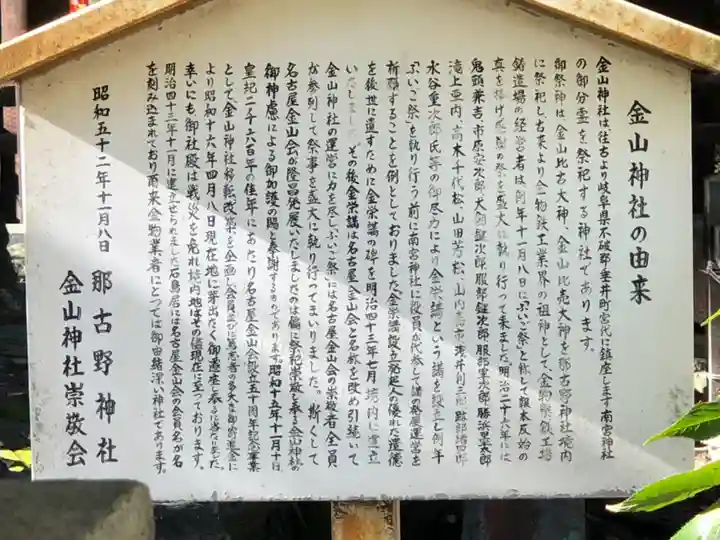 金山神社の由来
金山神社は往古より岐阜県不破郡垂井町宮代に鎮座します南宮神社
の御分霊を祭祀する神社であります。
御祭神は、金山比古大神、金山比売大神を那古野神社境内
に祭祀し古来より金物鉄工業界の祖神として、金物祭鉄工場
鋳造場の経営者は例年十一月八日にふいご祭と称して報本反始の
真を捧げ感謝の祭を盛大に執り行って来ました。明治二十六年には
鬼頭兼吉、市原安次郎、犬飼鎌次郎、服部鎌次郎、服部重次郎、勝浜男太郎
滝上亜内、高木千代松、山田芳松、山内
水谷重次郎氏等の御尽力により金栄講という講を設立し例年
ふいご祭"を執り行う前に南宮神社に役員が代参して講の発展運営を
祈願することを例としておりました。金栄講設立発起人の優れた遺徳
を後世に遺すために金栄講の碑を明治四十三年七月境内に建立
いたしました。その後金栄講は名古屋金山会と名称を改め引続いて
金山神社の運営に力を尽しふいご祭"には名古屋金山会の崇敬者全員
が参列して祭事を盛大に執り行ってまいりました。斯くして
名古屋金山会が隆昌発展いたしましたのは偏に敬神崇敬を奉る金山神社の
御神慮による御加護の賜と奉謝するものであります。昭和十五年十一月十日
皇紀二千六百年の佳年にあたり名古屋金山会設立五十周年記念事業
として金山神社移転改築を企画し会員並びに篤志者の多大な御寄進金に
より昭和十六年四月八日現在地に芽出たく御遷座し奉るに当りました
幸いにも御社殿は戦災を免れ境内地はその儘現在に至っております。
明治四十三年十一月に建立せられました石鳥居には名古屋金山会の会員名が名
を刻み込まれており爾来金物業者にとっては御由緒深い神社であります。
昭和五十二年十一月八日 那古野神社
金山神社崇敬会